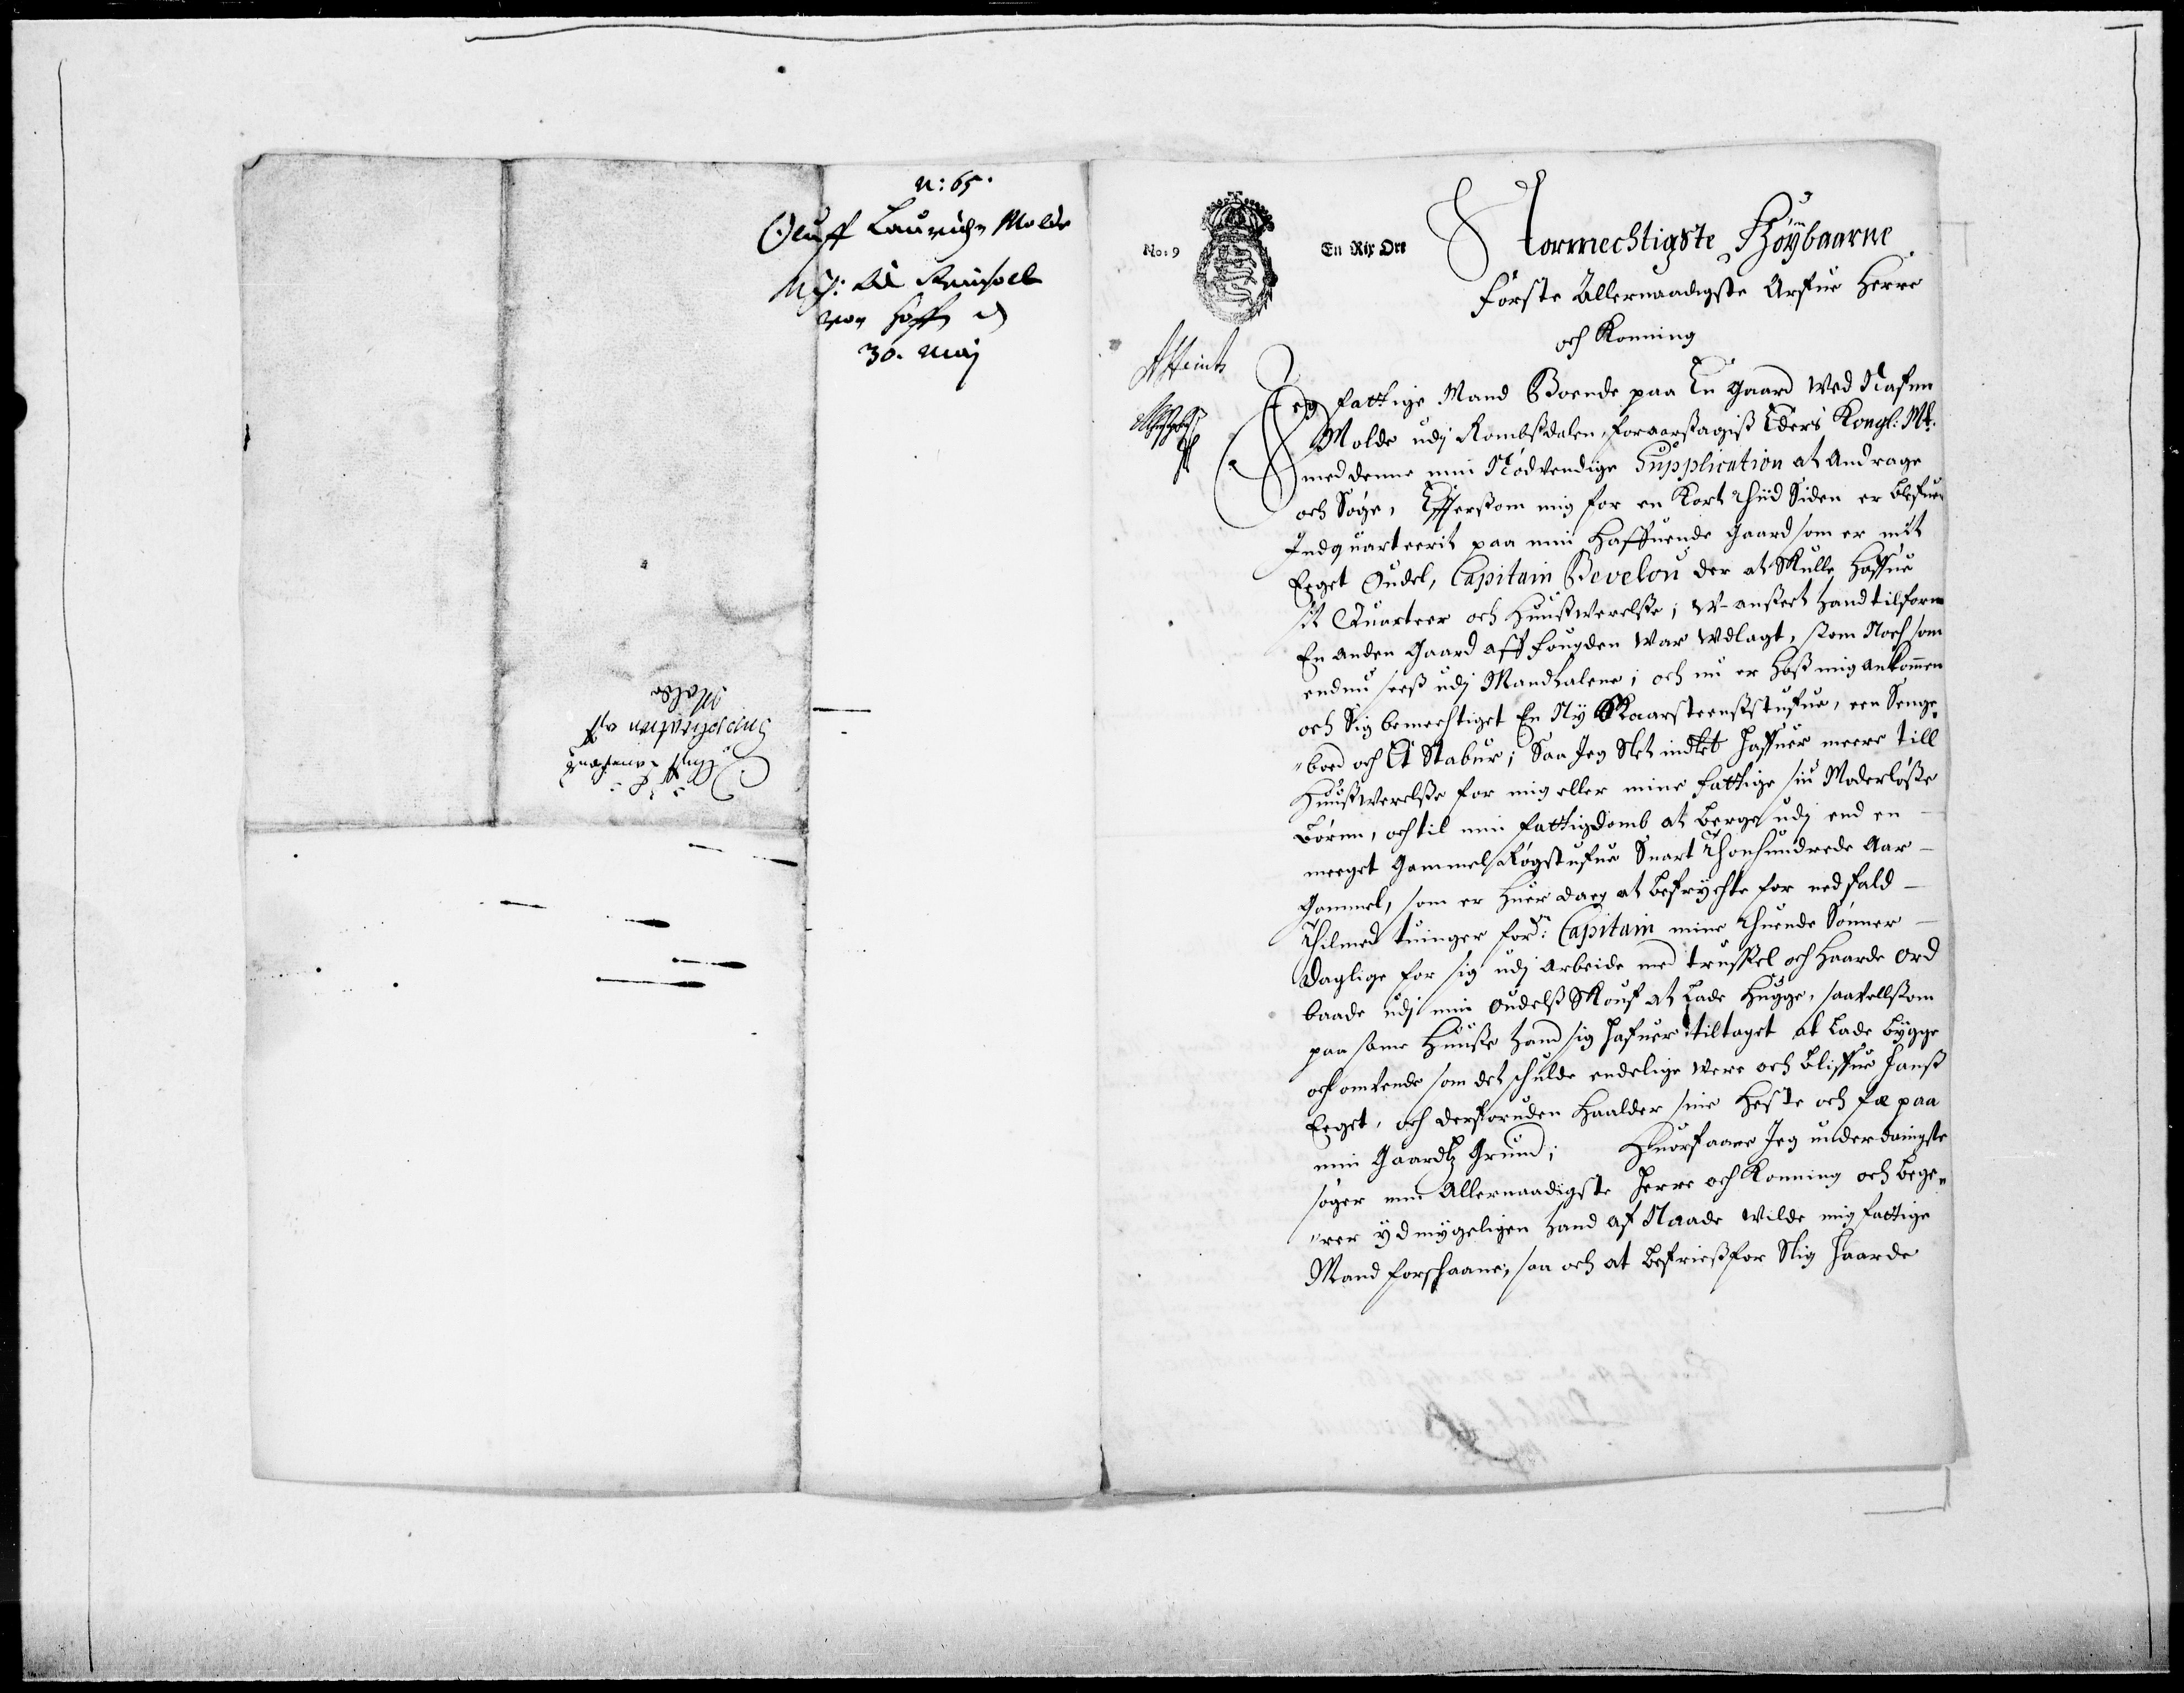 N: 65.
Oluff Laurichsn Molde
30. Maj
Oluff Lauritzens
Supplication aff
Molde
No: 9
En Rix Ort
Stormechtigste Høÿbaarne
Første Allernaadigste Arffue Herre
och Konning
Jeg fattige Mand Boende paa En Gaard wed Nafnn
Molde udj Rombsdalen, foraarsagis Eders Kongl: Mt.
med denne min Nødvendige Supplication at Andrage
och Søge, Effterssom mig for en Kort Thiid Siden er blefuen
Indquarteerit paa min Haffuende Gaard som er mit
Eeget Oudel, Capitain Bevelou der at Skulle Haffue
sit Quarteer och Huuswerelsse; w-anseet hand tilforn
En anden Gaard aff Fougden war wdlagt, som Noch som
endnu seess udj Mandtalene; och nu er hoss mig ankommen
och Sig bemechtiget En Ny Skaarsteensstufue, een Senge
"boed och Et Stabur; Saa Jeg Slet indtet haffuer meere till
Huusswerelsse for mig eller mine fattige siu Moderløsse
Børnn, och til min fattigdomb at berge udj end en
meeget Gammel Røgstufue Snart Thouhundrede Aar
Gammel, som er huer dag at befrychte for nedfald
Thilmed tuinger ford: Capitain mine Thuende Sønner
Daglige for sig udj Arbeide med trussel och Haarde Ord
baade udj min Oudelss Skouf at Lade Hugge, saavellssom
paa same Huusse hand sig hafuer tiltaget at Lade bygge
och omvende som det schulde endelige were och bliffue hanss
Eeget, och derforuden Haalder sine Heste och fæ paa
min Gaardtz Grund; Huorfaare Jeg underdanigste
søger min Allernaadigste Herre och Konning och bege"
"rer ÿdmygeligen hand af Naade wilde mig fattige
Mand forschaane, saa och at befriess for Slig Haarde